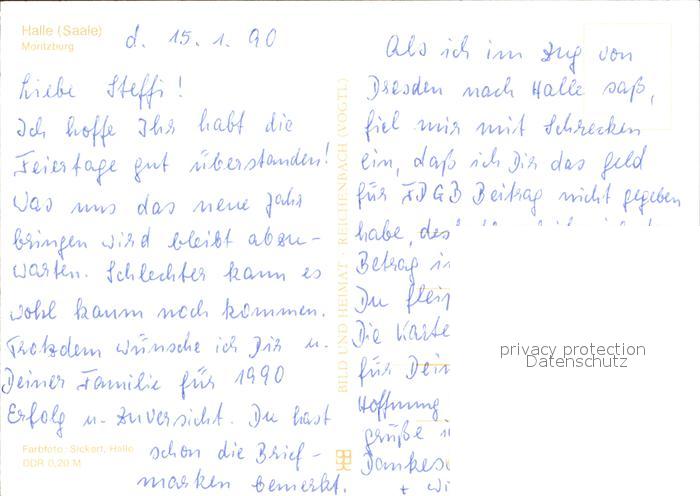 Halle (Saale)
Moritzburg
d. 15. 1. 90
Liebe Steffi!
Ich hoffe Ihr habt die
Feiertage gut überstanden!
Was uns das neue Jahr
bringen wird bleibt abzu-
warten. Schlechter kann es
wohl kaum noch kommen.
Trotzdem wünsche ich Dir u.
Deiner Familie für 1990
Erfolg u. Zuversicht. Du hast
schon die Brief-
marken bemerkt.
Farbfoto: Sickert, Halle
DDR 0,20 M
BILD UND HEIMAT · REICHENBACH (VOGTL)
Als ich im Zug von
Dresden nach Halle saß,
fiel mir mit Schrecken
ein, daß ich Dir das Geld
für FDGB Beitrag nicht gegeben
habe, des
Betrag in
Du
Die Karte
für Dein
Hoffnung
grüße
Dankes
+ wi
privacy protection
Datenschutz